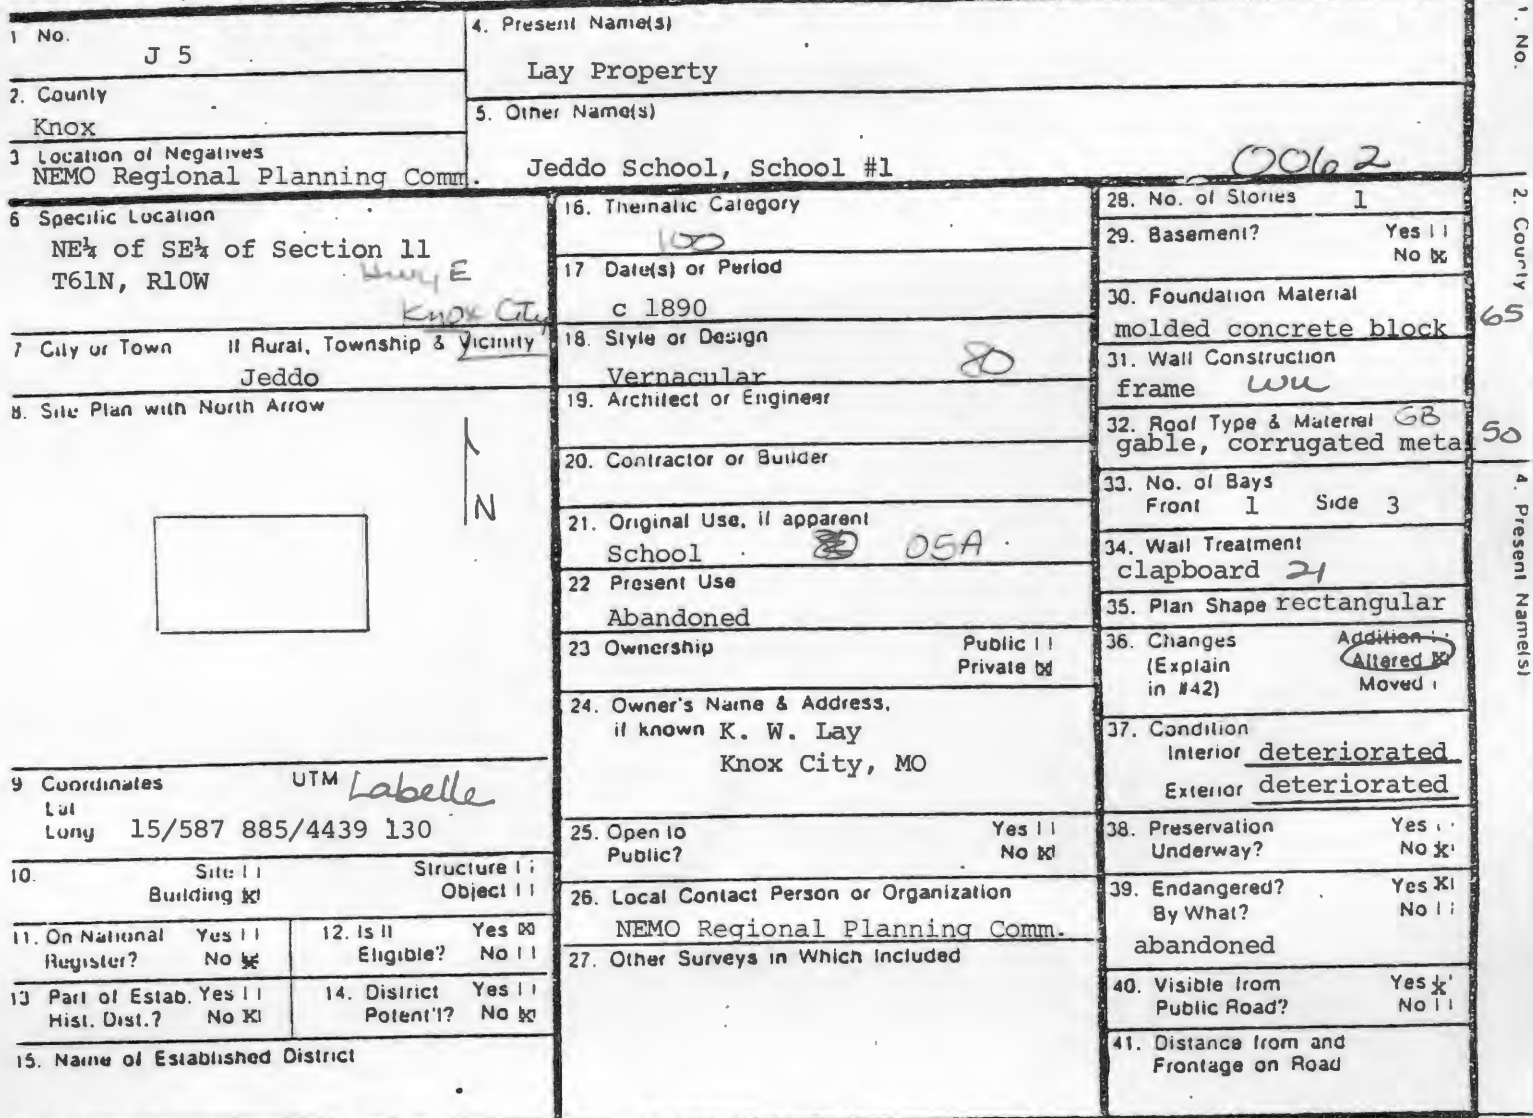 1 No.
J 5
2. County
Knox
3 Location of Negatives
NEMO Regional Planning Comm.
4. Present Name(s)
Lay Property
5. Other Name(s)
Jeddo School, School #1
0062
6 Specific Location
NE¼ of SE¼ of Section 11
T61N, R10W
Hwy E
Knox City
7 City or Town If Rural, Township & Vicinity
Jeddo
8. Site Plan with North Arrow
N
9 Coordinates UTM Labelle
Lat
Long 15/587 885/4439 130
10. Site
Structure
Building X
Object
11. On National Register? Yes
No X
12. Is It Eligible? Yes X
No
13 Part of Estab. Hist. Dist.? Yes
No X
14. District Potent'l? Yes
No X
15. Name of Established District
16. Thematic Category
100
17 Date(s) or Period
c 1890
18. Style or Design
Vernacular 80
19. Architect or Engineer
20. Contractor or Builder
21. Original Use, if apparent
School 05A
22 Present Use
Abandoned
23 Ownership Public
Private X
24. Owner's Name & Address,
if known K. W. Lay
Knox City, MO
25. Open to Yes
Public? No X
26. Local Contact Person or Organization
NEMO Regional Planning Comm.
27. Other Surveys in Which Included
28. No. of Stories 1
29. Basement? Yes
No X
30. Foundation Material
molded concrete block 65
31. Wall Construction
frame
32. Roof Type & Material GB
gable, corrugated metal 50
33. No. of Bays
Front 1 Side 3
34. Wall Treatment
clapboard 21
35. Plan Shape rectangular
36. Changes Addition
(Explain Altered X
in #42) Moved
37. Condition
Interior deteriorated
Exterior deteriorated
38. Preservation Yes
Underway? No X
39. Endangered? Yes X
By What? No
abandoned
40. Visible from Yes X
Public Road? No
41. Distance from and
Frontage on Road
1. No.
2. County
4. Present Name(s)